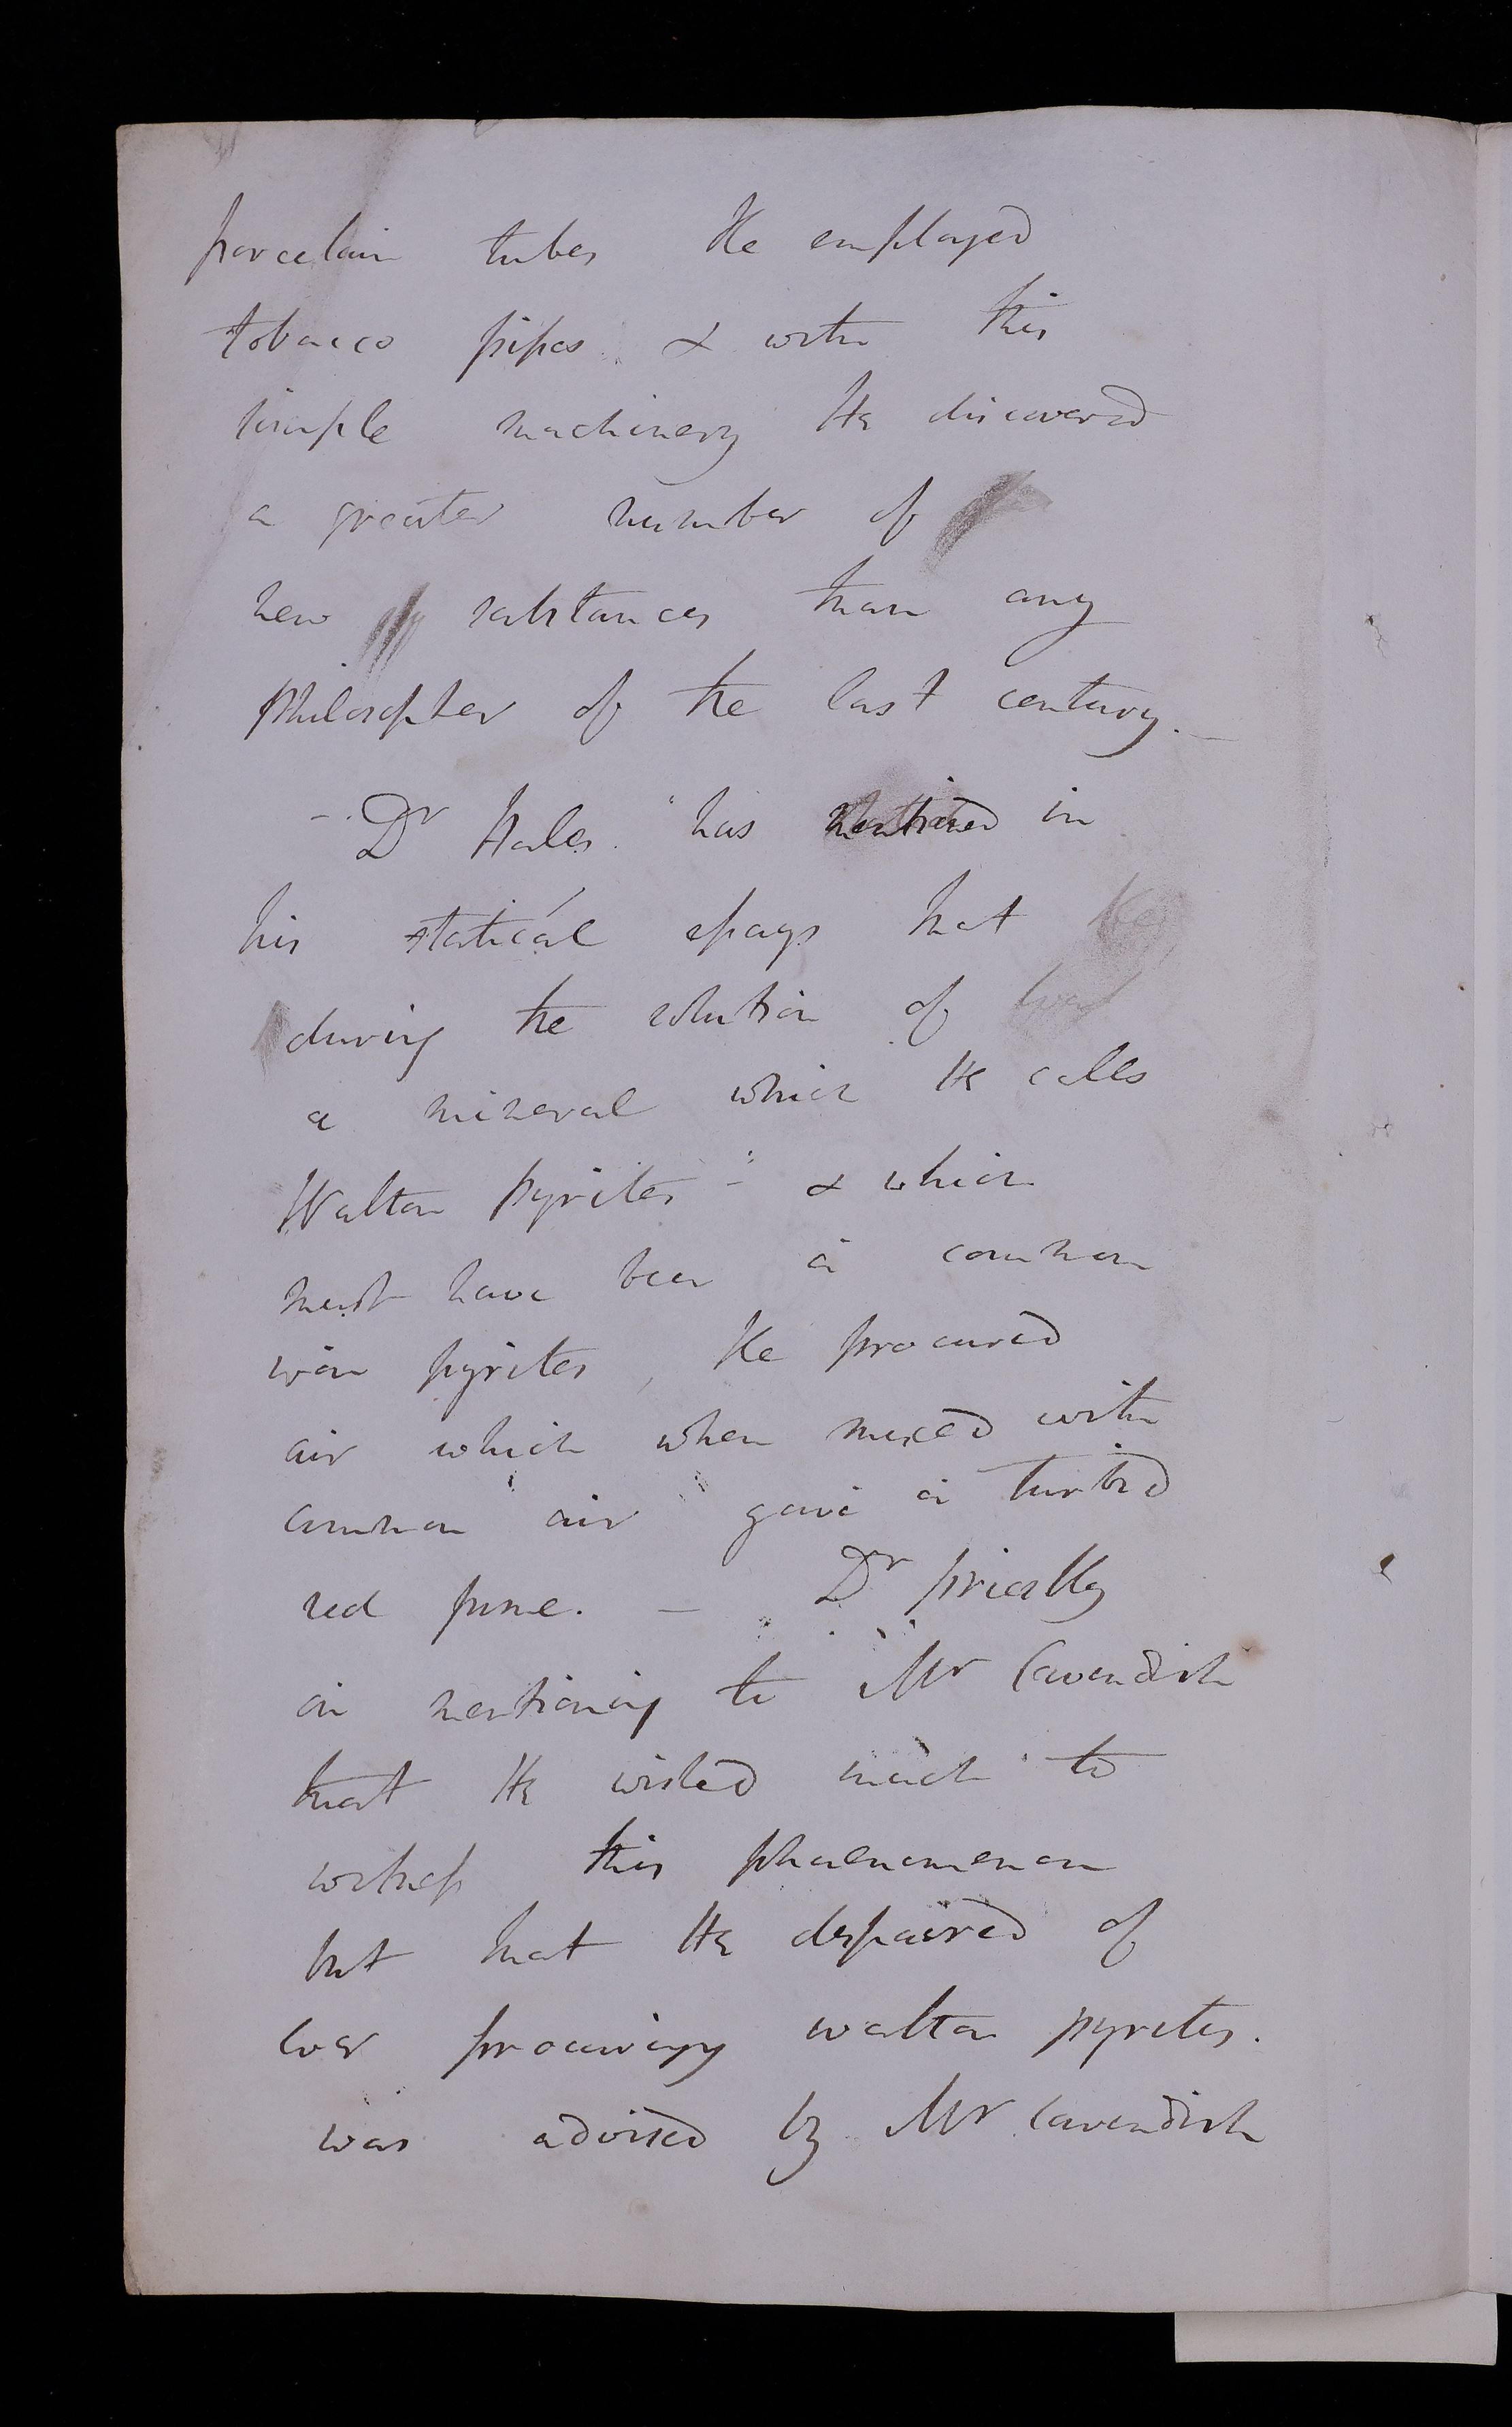 porcelain tubes He employed
tobacco pipes & with this
simple machinery He discovered
a greater number of
new substances than any
Philosopher of the last century. –
– Dr Hales has mentioned in
his statical essays that
during the solution of
a mineral which He calls
Walton pyrites" – & which
must have been a common
iron pyrites, He procured
air which when mixed with
common air gave a turbid
red fume. – Dr priestley
on mentioning to Mr Cavendish
that He wished much to
witness this phaenomenon
but that He despaired of
ever procuring walton pyrites.
was advised by Mr Cavendish